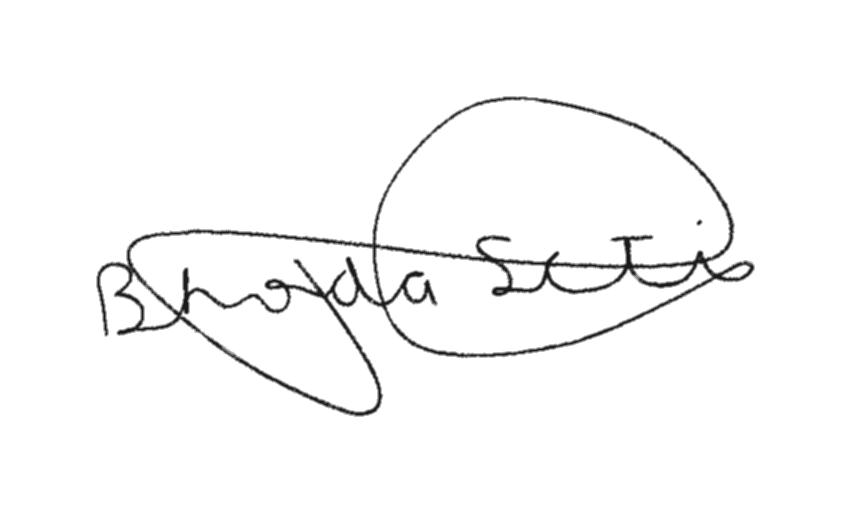 Bhoyda Seti